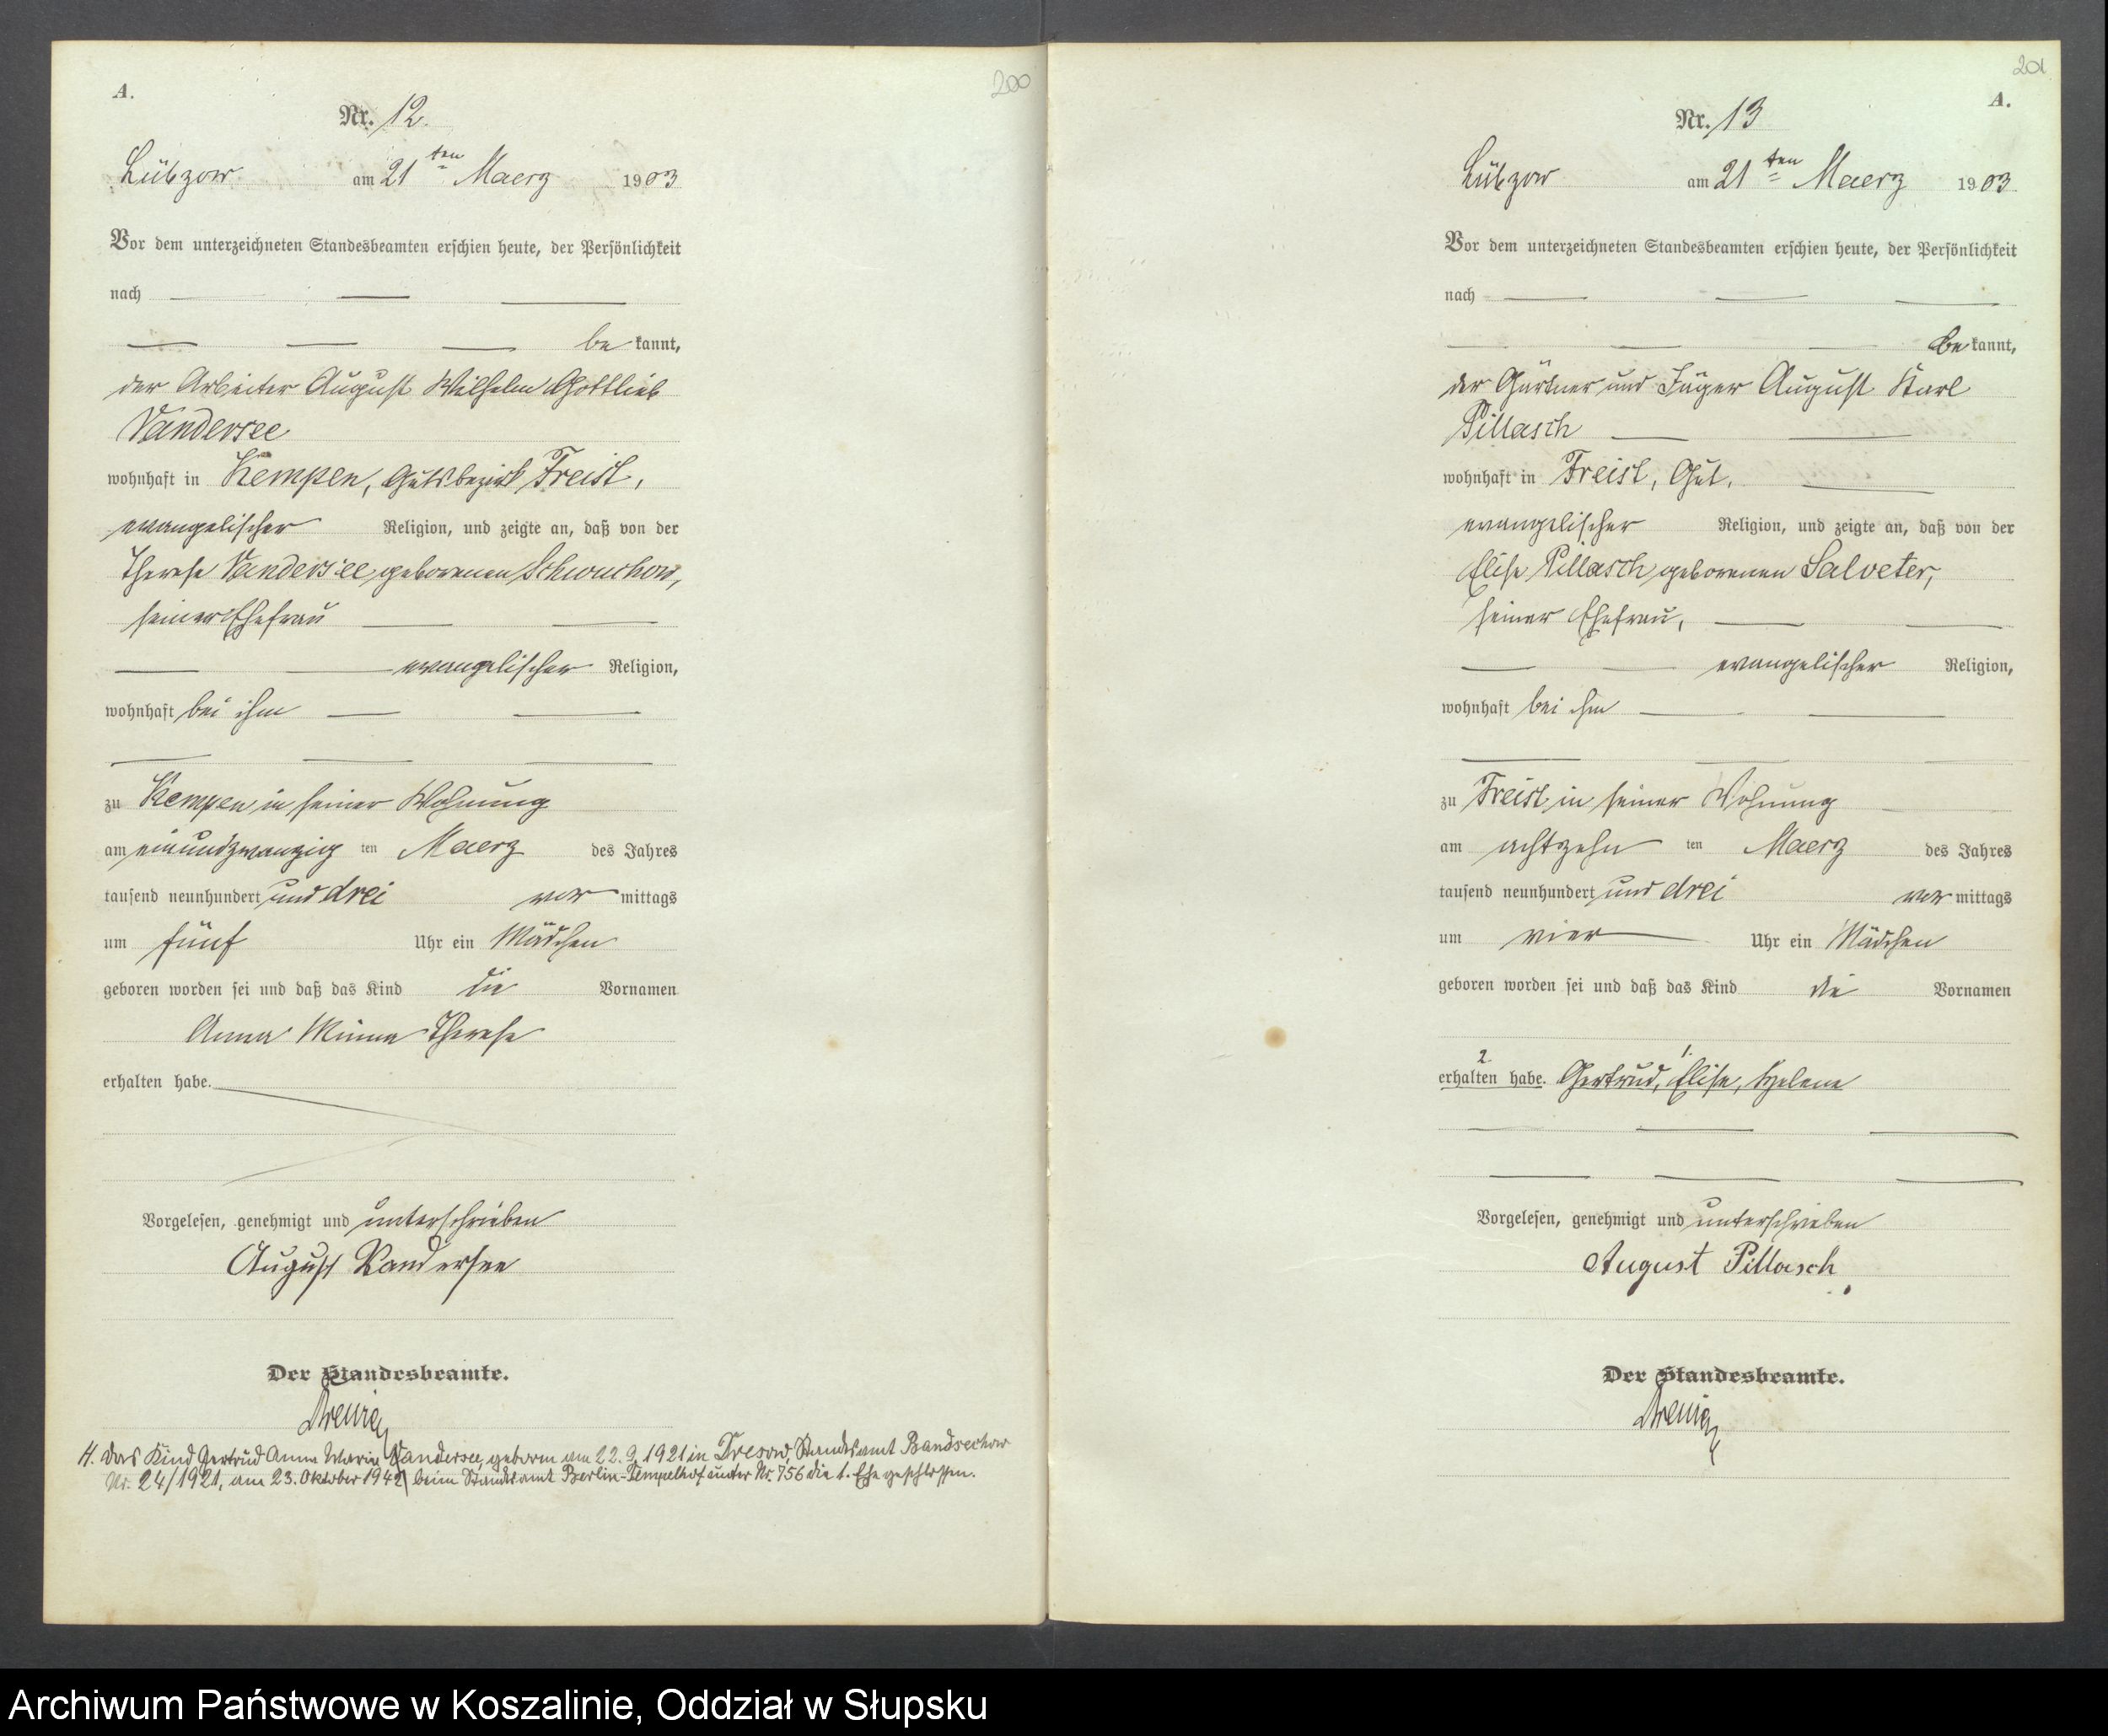 200
A.
Nr. 12.
Lübzow am 21ten Maerz 1903
Vor dem unterzeichneten Standesbeamten erschien heute, der Persönlichkeit
nach
be kannt,
der Arbeiter August Wilhelm Gottlieb
Vandersee
wohnhaft in Kempen, Gutsbezirk Freist,
evangelischer Religion, und zeigte an, daß von der
Therese Vandersee geborenen Schwuchow,
seiner Ehefrau
evangelischer Religion,
wohnhaft bei ihm
zu Kempen in seiner Wohnung
am einundzwanzig ten Maerz des Jahres
tausend neunhundert und drei vor mittags
um fünf Uhr ein Mädchen
geboren worden sei und daß das Kind die Vornamen
Anna Minna Therese
erhalten habe.
Vorgelesen, genehmigt und unterschrieben
August Vandersee
Der Standesbeamte.
H. Das Kind Gertrud Anna Maria Vandersee, geboren am 22.9.1921 in Dresow, Standesamt Bandsechow
Nr. 24/1921, am 23. Oktober 1942 beim Standesamt Berlin-Tempelhof unter Nr. 756 die 1. Ehe geschlossen.
201
A.
Nr. 13
Lübzow am 21ten Maerz 1903
Vor dem unterzeichneten Standesbeamten erschien heute, der Persönlichkeit
nach
be kannt,
der Gärtner und Jäger August Karl
Pillasch
wohnhaft in Freist, Gut,
evangelischer Religion, und zeigte an, daß von der
Elise Pillasch geborenen Salveter,
seiner Ehefrau,
evangelischer Religion,
wohnhaft bei ihm
zu Freist in seiner Wohnung
am achtzehn ten Maerz des Jahres
tausend neunhundert und drei vor mittags
um vier Uhr ein Mädchen
geboren worden sei und daß das Kind die Vornamen
2. 1.
erhalten habe. Gertrud, Elise, Helene
Vorgelesen, genehmigt und unterschrieben
August Pillasch
Der Standesbeamte.
Archiwum Państwowe w Koszalinie, Oddział w Słupsku